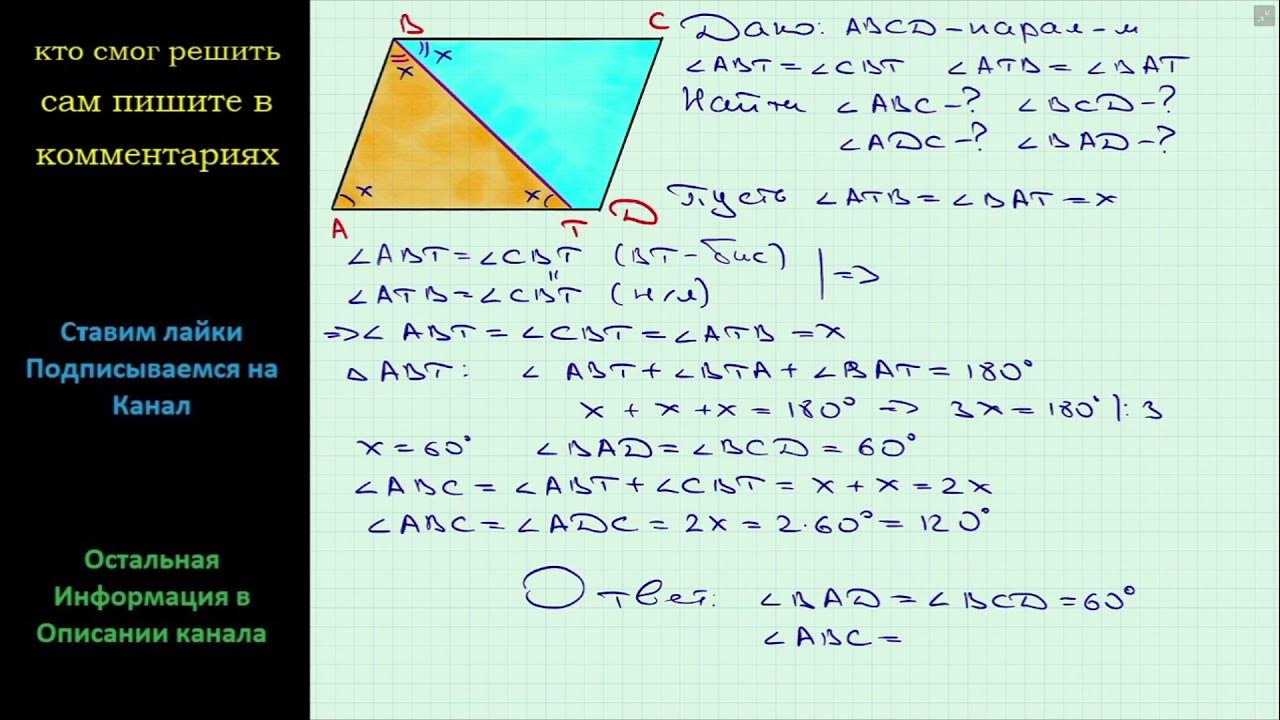 кто смог решить
сам пишите в
комментариях
Ставим лайки
Подписываемся на
Канал
Остальная
Информация в
Описании канала
B
C
x
x
x
x
A
T
D
Дано: ABCD-парал-м
∠ABT=∠CBT ∠ATB=∠BAT
Найти ∠ABC-? ∠BCD-?
∠ADC-? ∠BAD-?
Пусть ∠ATB=∠BAT=x
∠ABT=∠CBT (BT-бис)
∠ATB=∠CBT (н/л)
=>
=>∠ABT=∠CBT=∠ATB=x
△ABT: ∠ABT+∠BTA+∠BAT=180°
x+x+x=180° => 3x=180°|:3
x=60° ∠BAD=∠BCD=60°
∠ABC=∠ABT+∠CBT=x+x=2x
∠ABC=∠ADC=2x=2·60°=120°
Ответ: ∠BAD=∠BCD=60°
∠ABC=